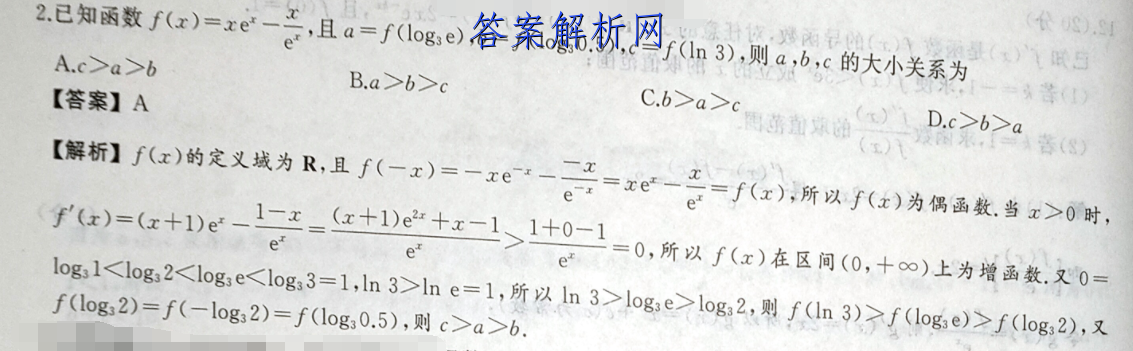 2.已知函数 f(x)=xeˣ-x/eˣ,且 a=f(log₃e), f(log₃0.5),c=f(ln 3),则 a,b,c 的大小关系为
答案解析网
A.c>a>b B.a>b>c C.b>a>c D.c>b>a
【答案】A
【解析】f(x)的定义域为 R,且 f(-x)=-xe⁻ˣ-(-x)/e⁻ˣ=xeˣ-x/eˣ=f(x),所以 f(x)为偶函数.当 x>0 时,
f′(x)=(x+1)eˣ-(1-x)/eˣ=((x+1)e²ˣ+x-1)/eˣ>(1+0-1)/eˣ=0,所以 f(x)在区间(0,+∞)上为增函数.又 0=
log₃1<log₃2<log₃e<log₃3=1,ln 3>ln e=1,所以 ln 3>log₃e>log₃2,则 f(ln 3)>f(log₃e)>f(log₃2),又
f(log₃2)=f(-log₃2)=f(log₃0.5),则 c>a>b.